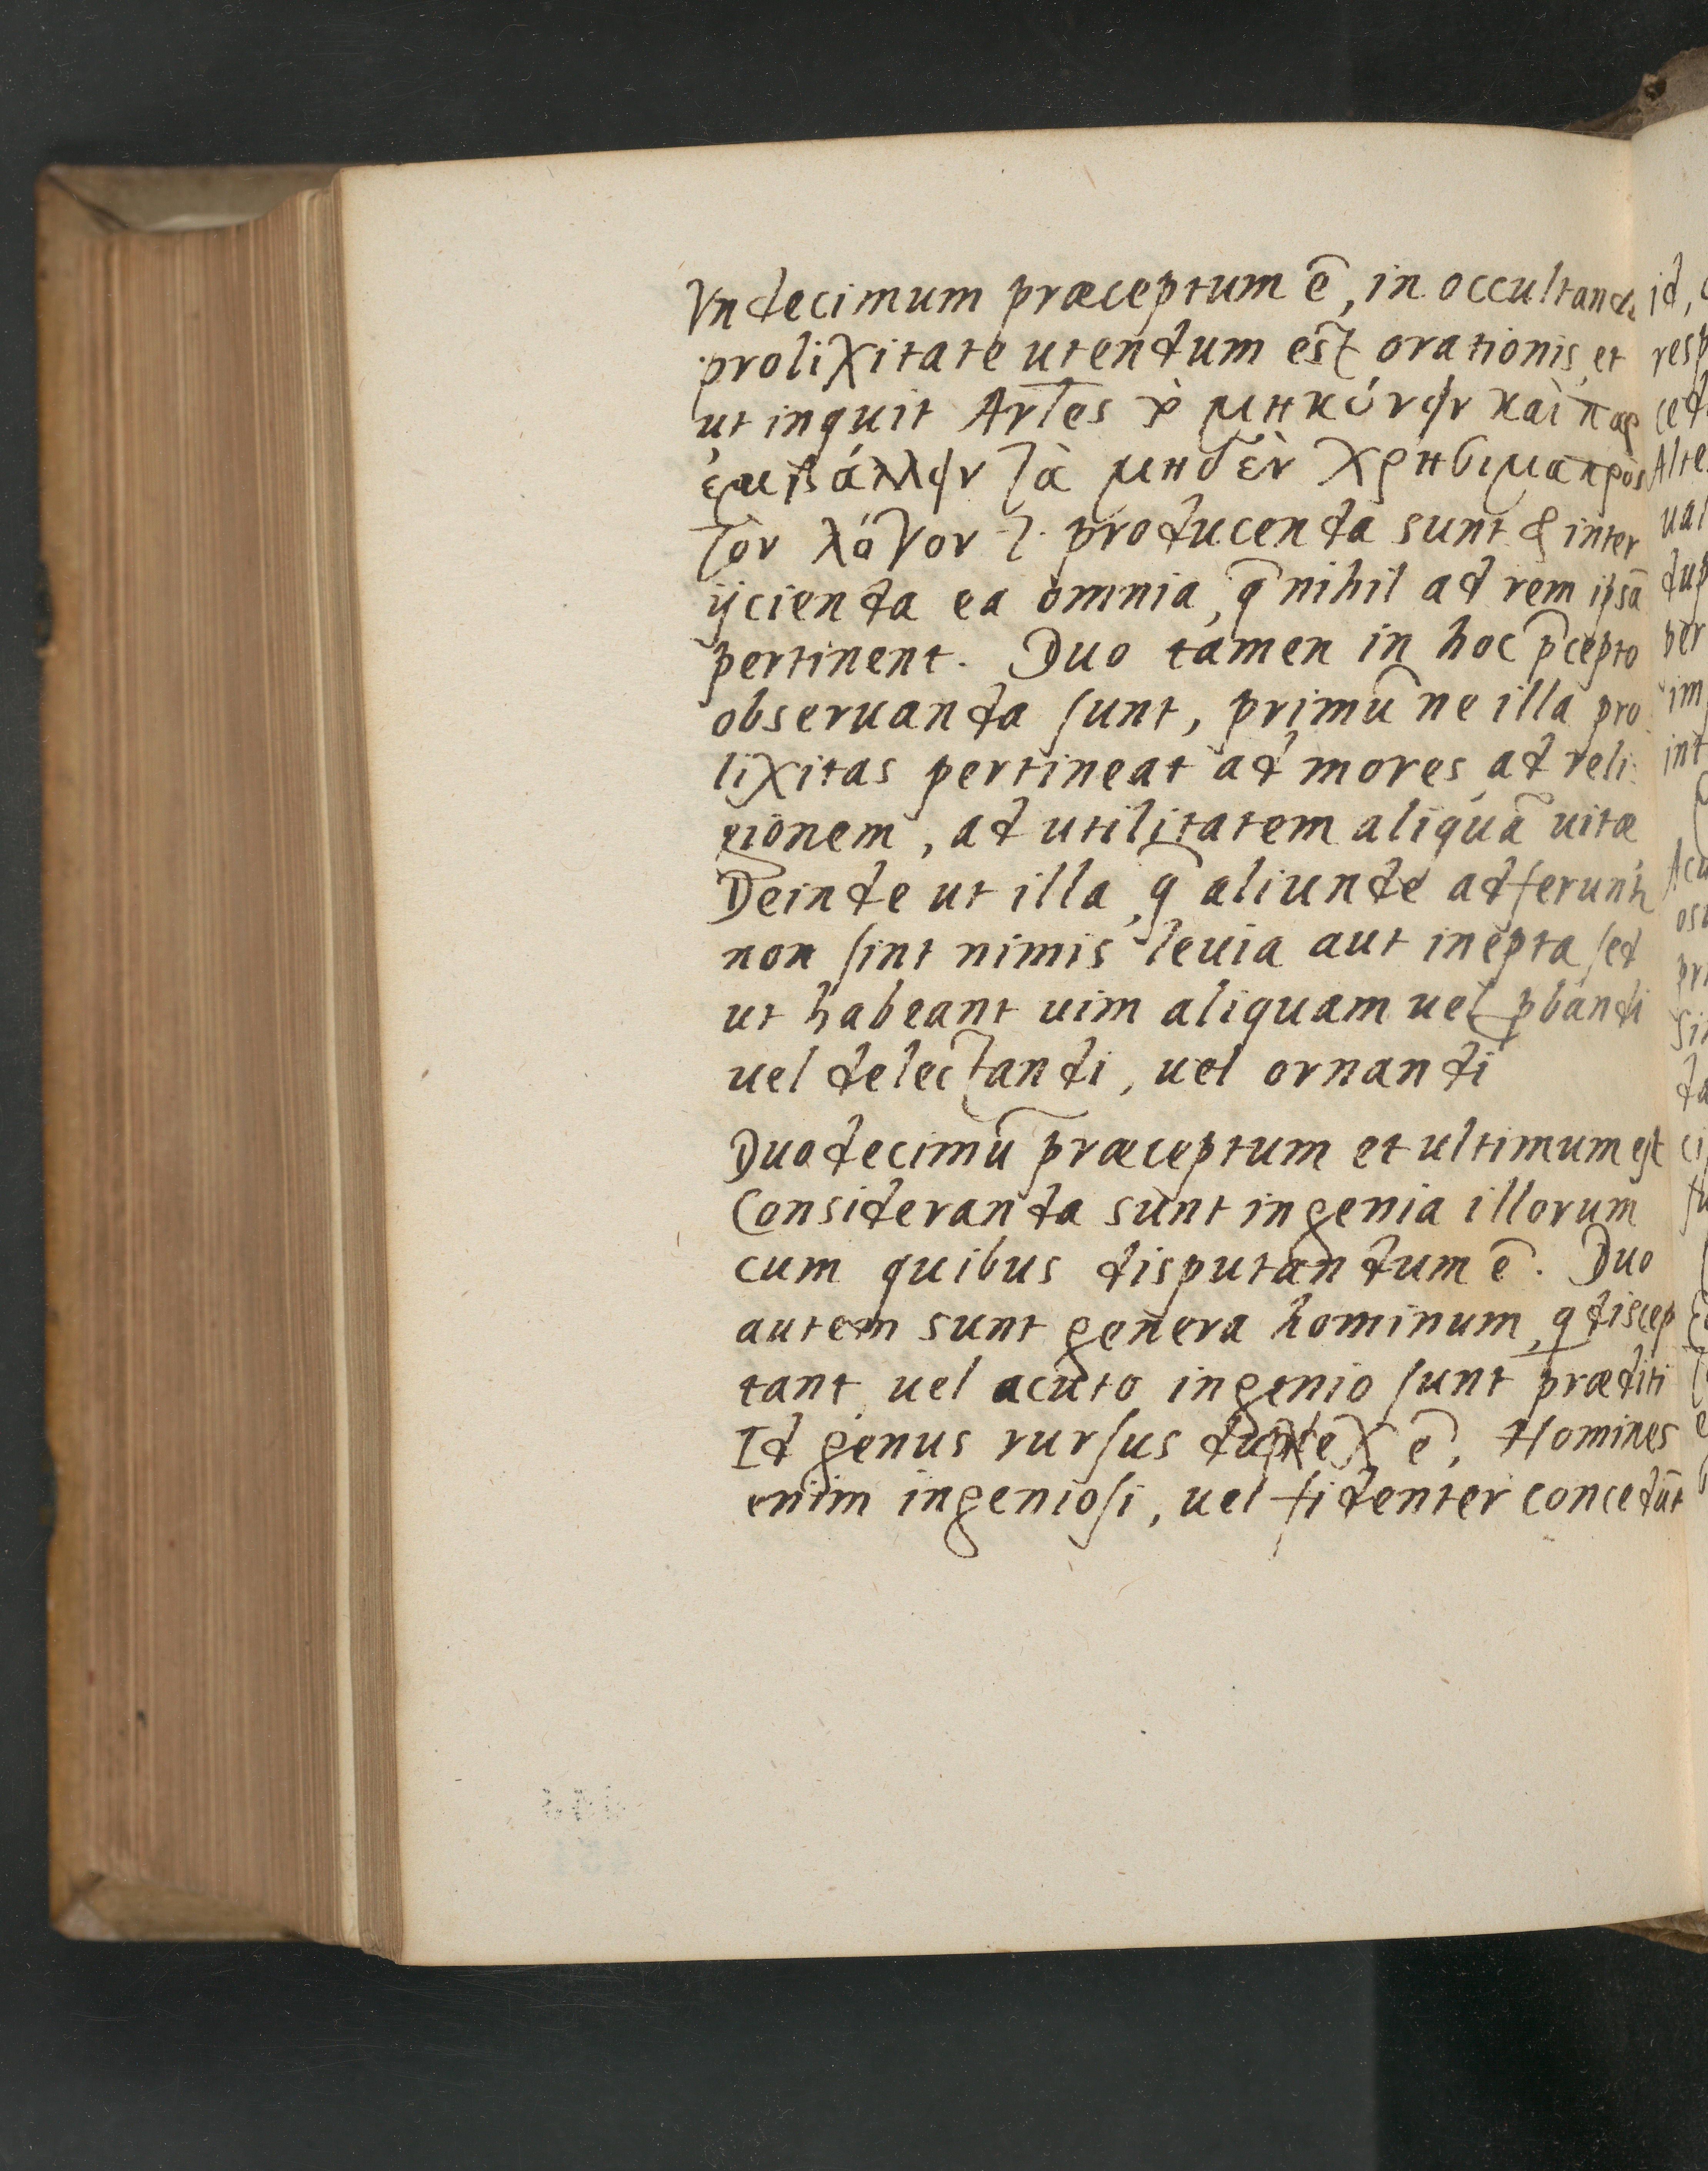 Vndecimum præceptum ē, in occultanda
prolixitate utendum est orationis, et
ut inquit Artes μηκύνειν καὶ παρ
εμβάλλειν τὰ μηδὲν χρήσιμα πρὸς
τὸν λόγον producenda sunt & inter
ijcienda ea omnia, q̄ nihil ad rem ipsā
pertinent. Duo tamen in hoc p̄cepto
obseruanda sunt, primū ne illa pro
lixitas pertineat ad mores, ad reli
gionem, ad utilitatem aliquā uitæ
Deinde ut illa, q̄ aliunde adferunt
non sint nimis leuia aut inepta, sed
ut habeant uim aliquam uel pbandi
uel delectandi, uel ornandi
Duodecimū præceptum et ultimum est
Consideranda sunt ingenia illorum
cum quibus disputandum ē. Duo
autem sunt genera hominum, q discep
tant, uel acuto ingenio sunt præditi
Id genus rursus duplex ē, Homines
enim ingeniosi, uel fidenter concedūt